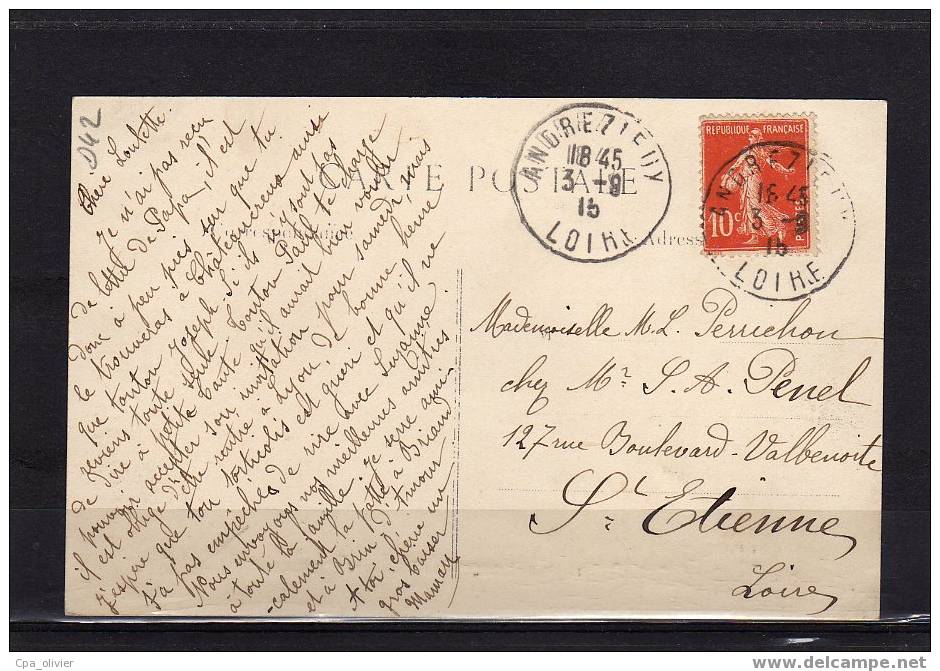 D42
Chère Loulette.
Je n'ai pas reçu
de lettre de Papa, il est
donc à peu près sur que tu
le trouveras à Châteaucreux ainsi
que tonton Joseph. S'ils n'y sont pas
reviens toute seule. Tonton Paul te charge
de dire à petite tante
qu'il aurait bien voulu
pouvoir accepter son invitation pour samedi mais
il est obligé d'être rentré à Lyon de bonne heure
J'espère que ton torticolis est guéri et qu'il ne
t'a pas empêchée de rire avec Suzanne.
Nous envoyons nos meilleures amitiés
à toute la famille
je serre ami-
calement la patte à Briand
et à Brin d'Amour
A toi, chérie un
gros baiser
CARTE POSTALE
Correspondance
Adresse
ANDREZIEUX
18 45
3 - 9
15
LOIRE
REPUBLIQUE FRANÇAISE
10c
POSTES
ANDREZIEUX
18 45
3 - 9
15
LOIRE
Mademoiselle M. L. Perrichon
chez Mr. S. A. Penel
127 rue Boulevard-Valbenoite
St. Etienne
Loire
Cpa_olivier
www.delcampe.net